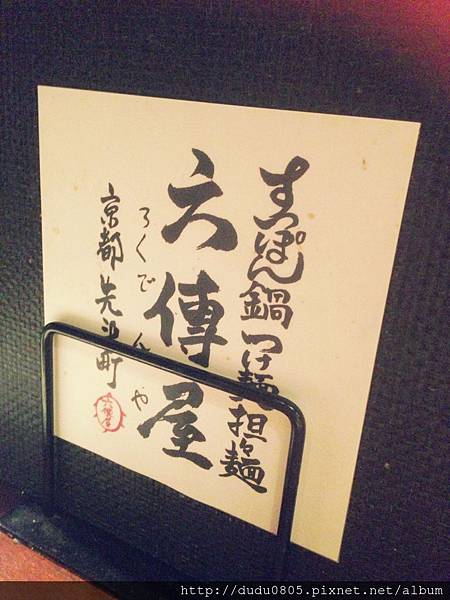 すっぽん鍋つけ麺担々麺
六傳屋
ろくでんや
京都先斗町
http://dudu0805.pixnet.net/album